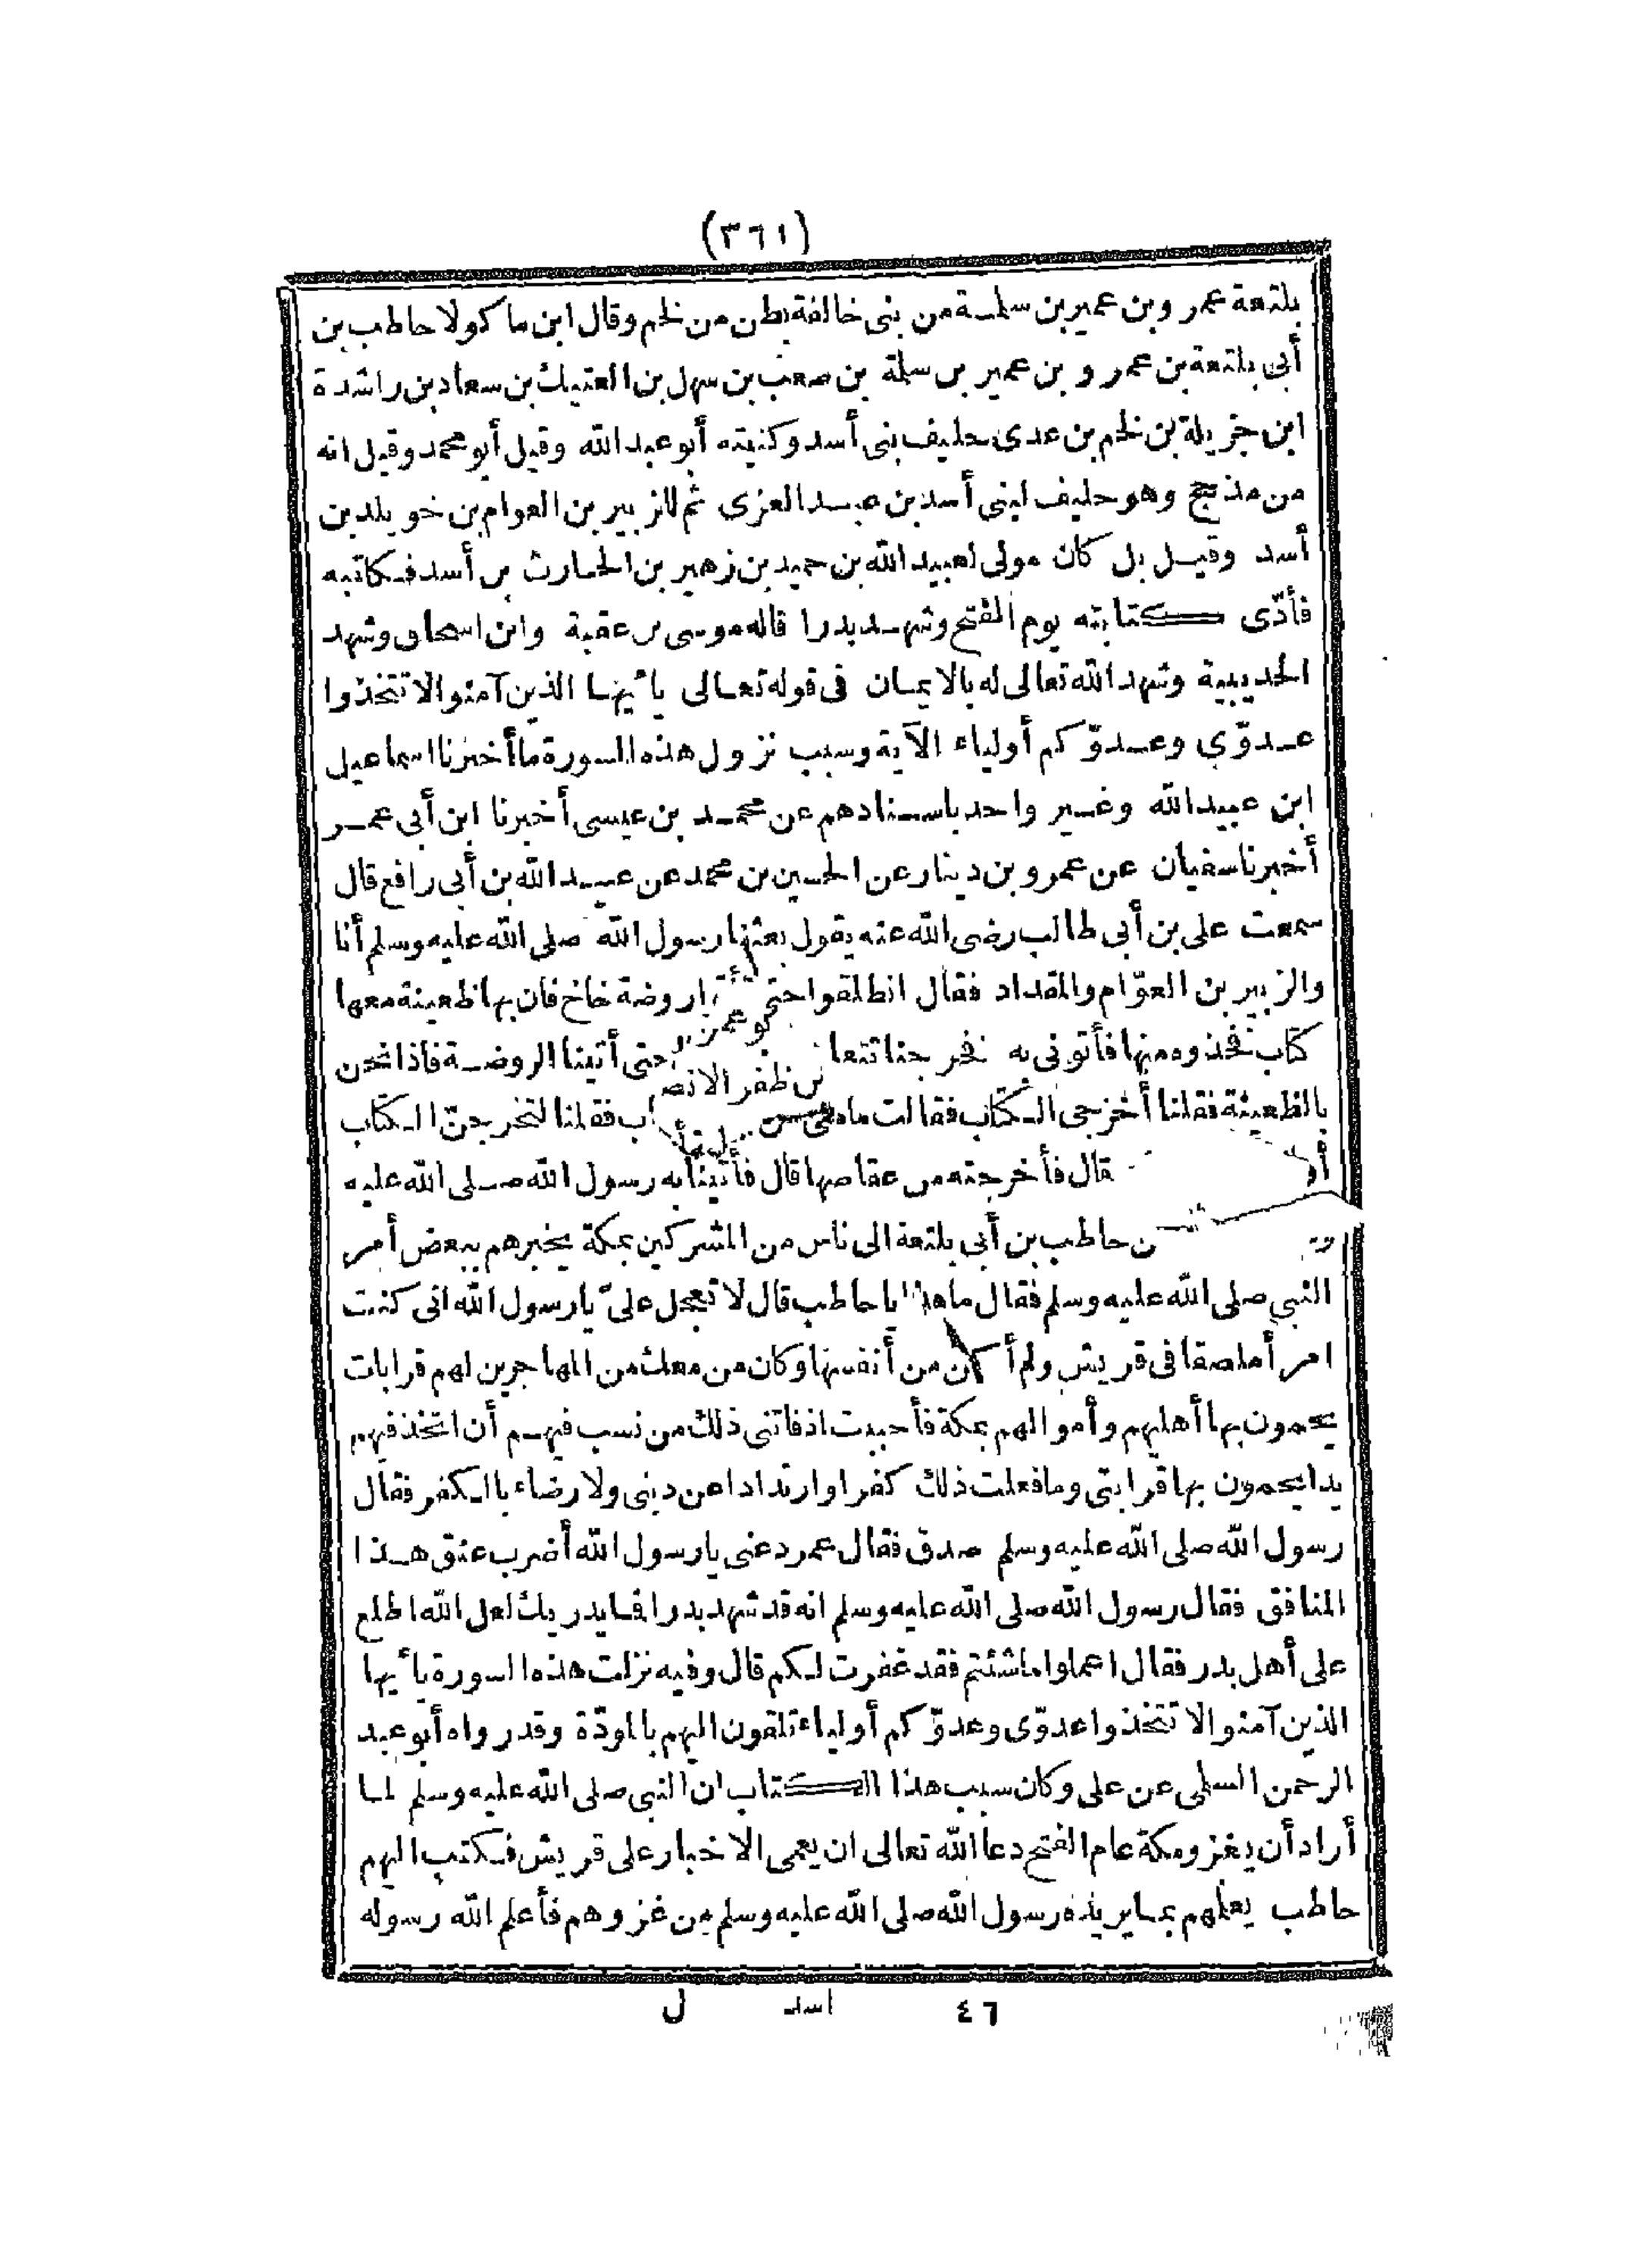 (٣٦١)
بلتعة عمرو بن عمير بن سلمة من بنى خالفة بطن من لخم وقال ابن ماكولا حاطب بن
أبى بلتعة بن عمرو بن عمير بن سلمة بن صعب بن سهل بن العتيك بن سعاد بن راشدة
ابن جزيلة بن لخم بن عدى حليف بنى أسد وكنيته أبو عبد الله وقيل أبو محمد وقيل انه
من مذحج وهو حليف لبنى أسد بن عبد العزى ثم للزبير بن العوام بن خويلد بن
أسد وقيل بل كان مولى لعبيد الله بن حميد بن زهير بن الحارث بن أسد فكاتبه
فأدّى كتابته يوم الفتح وشهد بدرا قاله موسى بن عقبة وابن اسحاق وشهد
الحديبية وشهد الله تعالى له بالايمان فى قوله تعالى يا أيها الذين آمنوا لا تتخذوا
عدوّى وعدوّكم أولياء الآية وسبب نزول هذه السورة ما أخبرنا اسماعيل
ابن عبيد الله وغير واحد باسنادهم عن محمد بن عيسى أخبرنا ابن أبى عمر
أخبرنا سفيان عن عمرو بن دينار عن الحسين بن محمد عن عبيد الله بن أبى رافع قال
سمعت على بن أبى طالب رضى الله عنه يقول بعثنا رسول الله صلى الله عليه وسلم أنا
والزبير بن العوّام والمقداد فقال انطلقوا حتى روضة خاخ فان بها ظعينة معها
كتاب فخذوه منها فأتونى به فخرجنا تتعا حتى أتينا الروضة فاذا نحن
بالظعينة فقلنا أخرجى الكتاب فقالت ما فقلنا لتخرجنّ الكتاب
قال فأخرجته من عقاصها قال فأتينا به رسول الله صلى الله عليه
ن حاطب بن أبى بلتعة الى ناس من المشركين بمكة يخبرهم ببعض أمر
النبى صلى الله عليه وسلم فقال ما هذا يا حاطب قال لا تعجل علىّ يا رسول الله انى كنت
امرأ ملصقا فى قريش ولم أكن من أنفسها وكان من معك من المهاجرين لهم قرابات
يحمون بها أهليهم وأموالهم بمكة فأحببت اذ فاتنى ذلك من نسب فيهم أن اتخذ فيهم
يدا يحمون بها قرابتى وما فعلت ذلك كفرا وارتدادا عن دينى ولا رضاء بالكفر فقال
رسول الله صلى الله عليه وسلم صدق فقال عمر دعنى يا رسول الله أضرب عنق هذا
المنافق فقال رسول الله صلى الله عليه وسلم انه قد شهد بدرا فما يدريك لعل الله اطلع
على أهل بدر فقال اعملوا ما شئتم فقد غفرت لكم قال وفيه نزلت هذه السورة يا أيها
الذين آمنوا لا تتخذوا عدوّى وعدوّكم أولياء تلقون اليهم بالمودّة وقد رواه أبو عبد
الرحمن السلمى عن على وكان سبب هذا الكتاب ان النبى صلى الله عليه وسلم لما
أراد أن يغزو مكة عام الفتح دعا الله تعالى ان يعمى الاخبار على قريش فكتب اليهم
حاطب يعلمهم بما يريده رسول الله صلى الله عليه وسلم من غزوهم فأعلم الله رسوله
٤٦ اسد ل